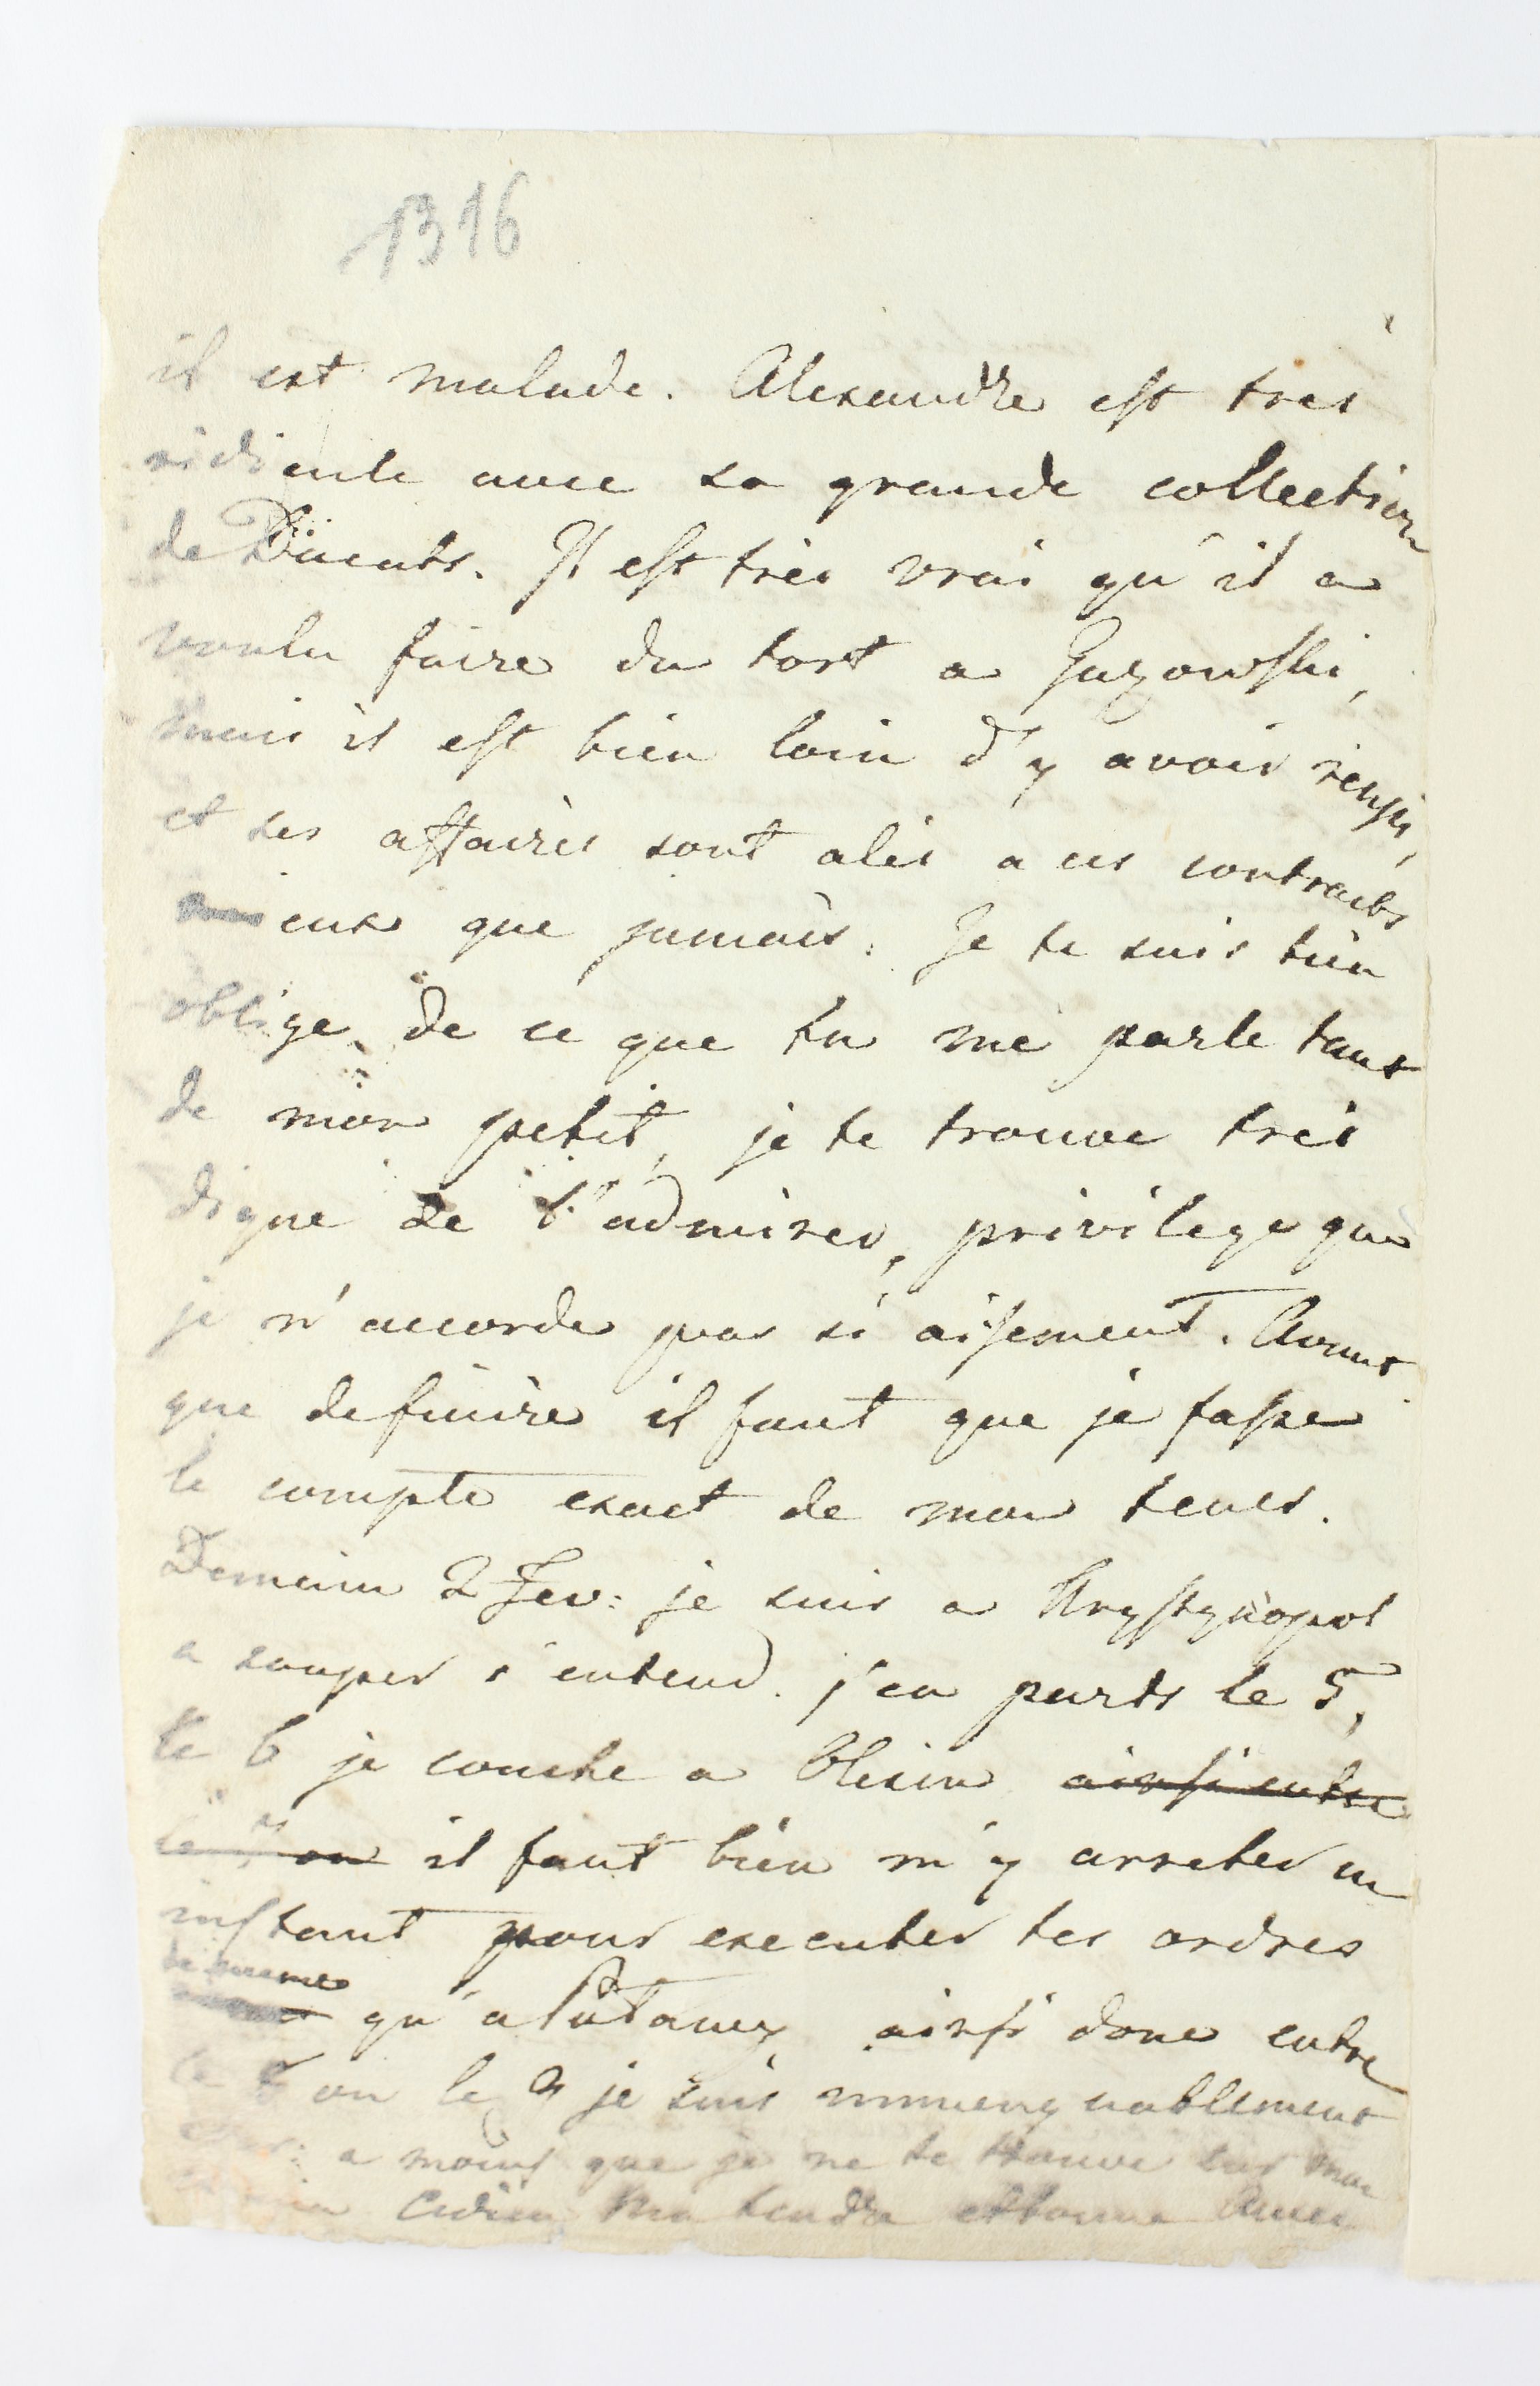 1316
il est malade. Alexandre est tres
ridicule avec sa grande collection
de Ducats. Il est très vrai qu'il a
voulu faire du tort a Guzowski,
mais il est bien loin d'y avoir reussi,
et ses affaires sont alés a ces contracts
mieux que jamais. Je te suis bien
oblige de ce que tu me parle tant
de mon petit, je te trouve très
digne de l'admirer, privilege que
je n'accorde pas si aisement. Avant
que definire il faut que je fasse
le compte exact de mon tems.
Demain 2 Fev: je suis a Krystynopol
a souper s'entend. j'en parts le 5,
le 6 je couche a Olesin ainsi entre
le ou il faut bien m'y arreter un
instant pour executer tes ordres
de meme
qu'a ainsi donc entre
le 8 ou le 9 je suis immenquablement
a moins que je ne te trouve sur mon
Adieu Ma tendre et bonne Amie